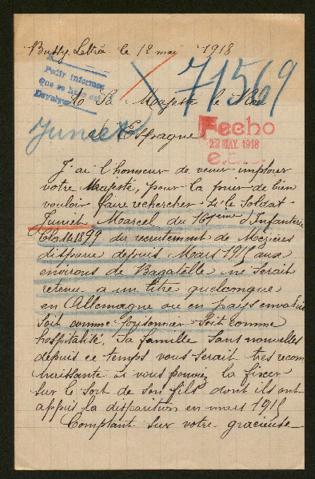 Bussy Lettrée le 12 mai 1918
Pedir informes
Que se haga
Devolver
71569
A Sa Majesté le Roi
d'Espagne
Fecho
22 MAY. 1918
J'ai l'honneur de venir implorer
votre Majesté, pour la prier de bien
vouloir faire rechercher si le Soldat
Marcel du 161eme d'Infanterie
Cla 1899 du recrutement de Mézières
disparu depuis Mars 1915 aux
environs de Bagatelle ne serait
retenu a un titre quelconque
en Allemagne ou en pays envahis
soit comme prisonnier soit comme
hospitalisé. Sa famille sans nouvelles
depuis ce temps vous serait tres recon
naissante si vous pouviez la fixer
sur le sort de son fils dont ils ont
appris la disparition en mars 1915
Comptant sur votre gracieuse